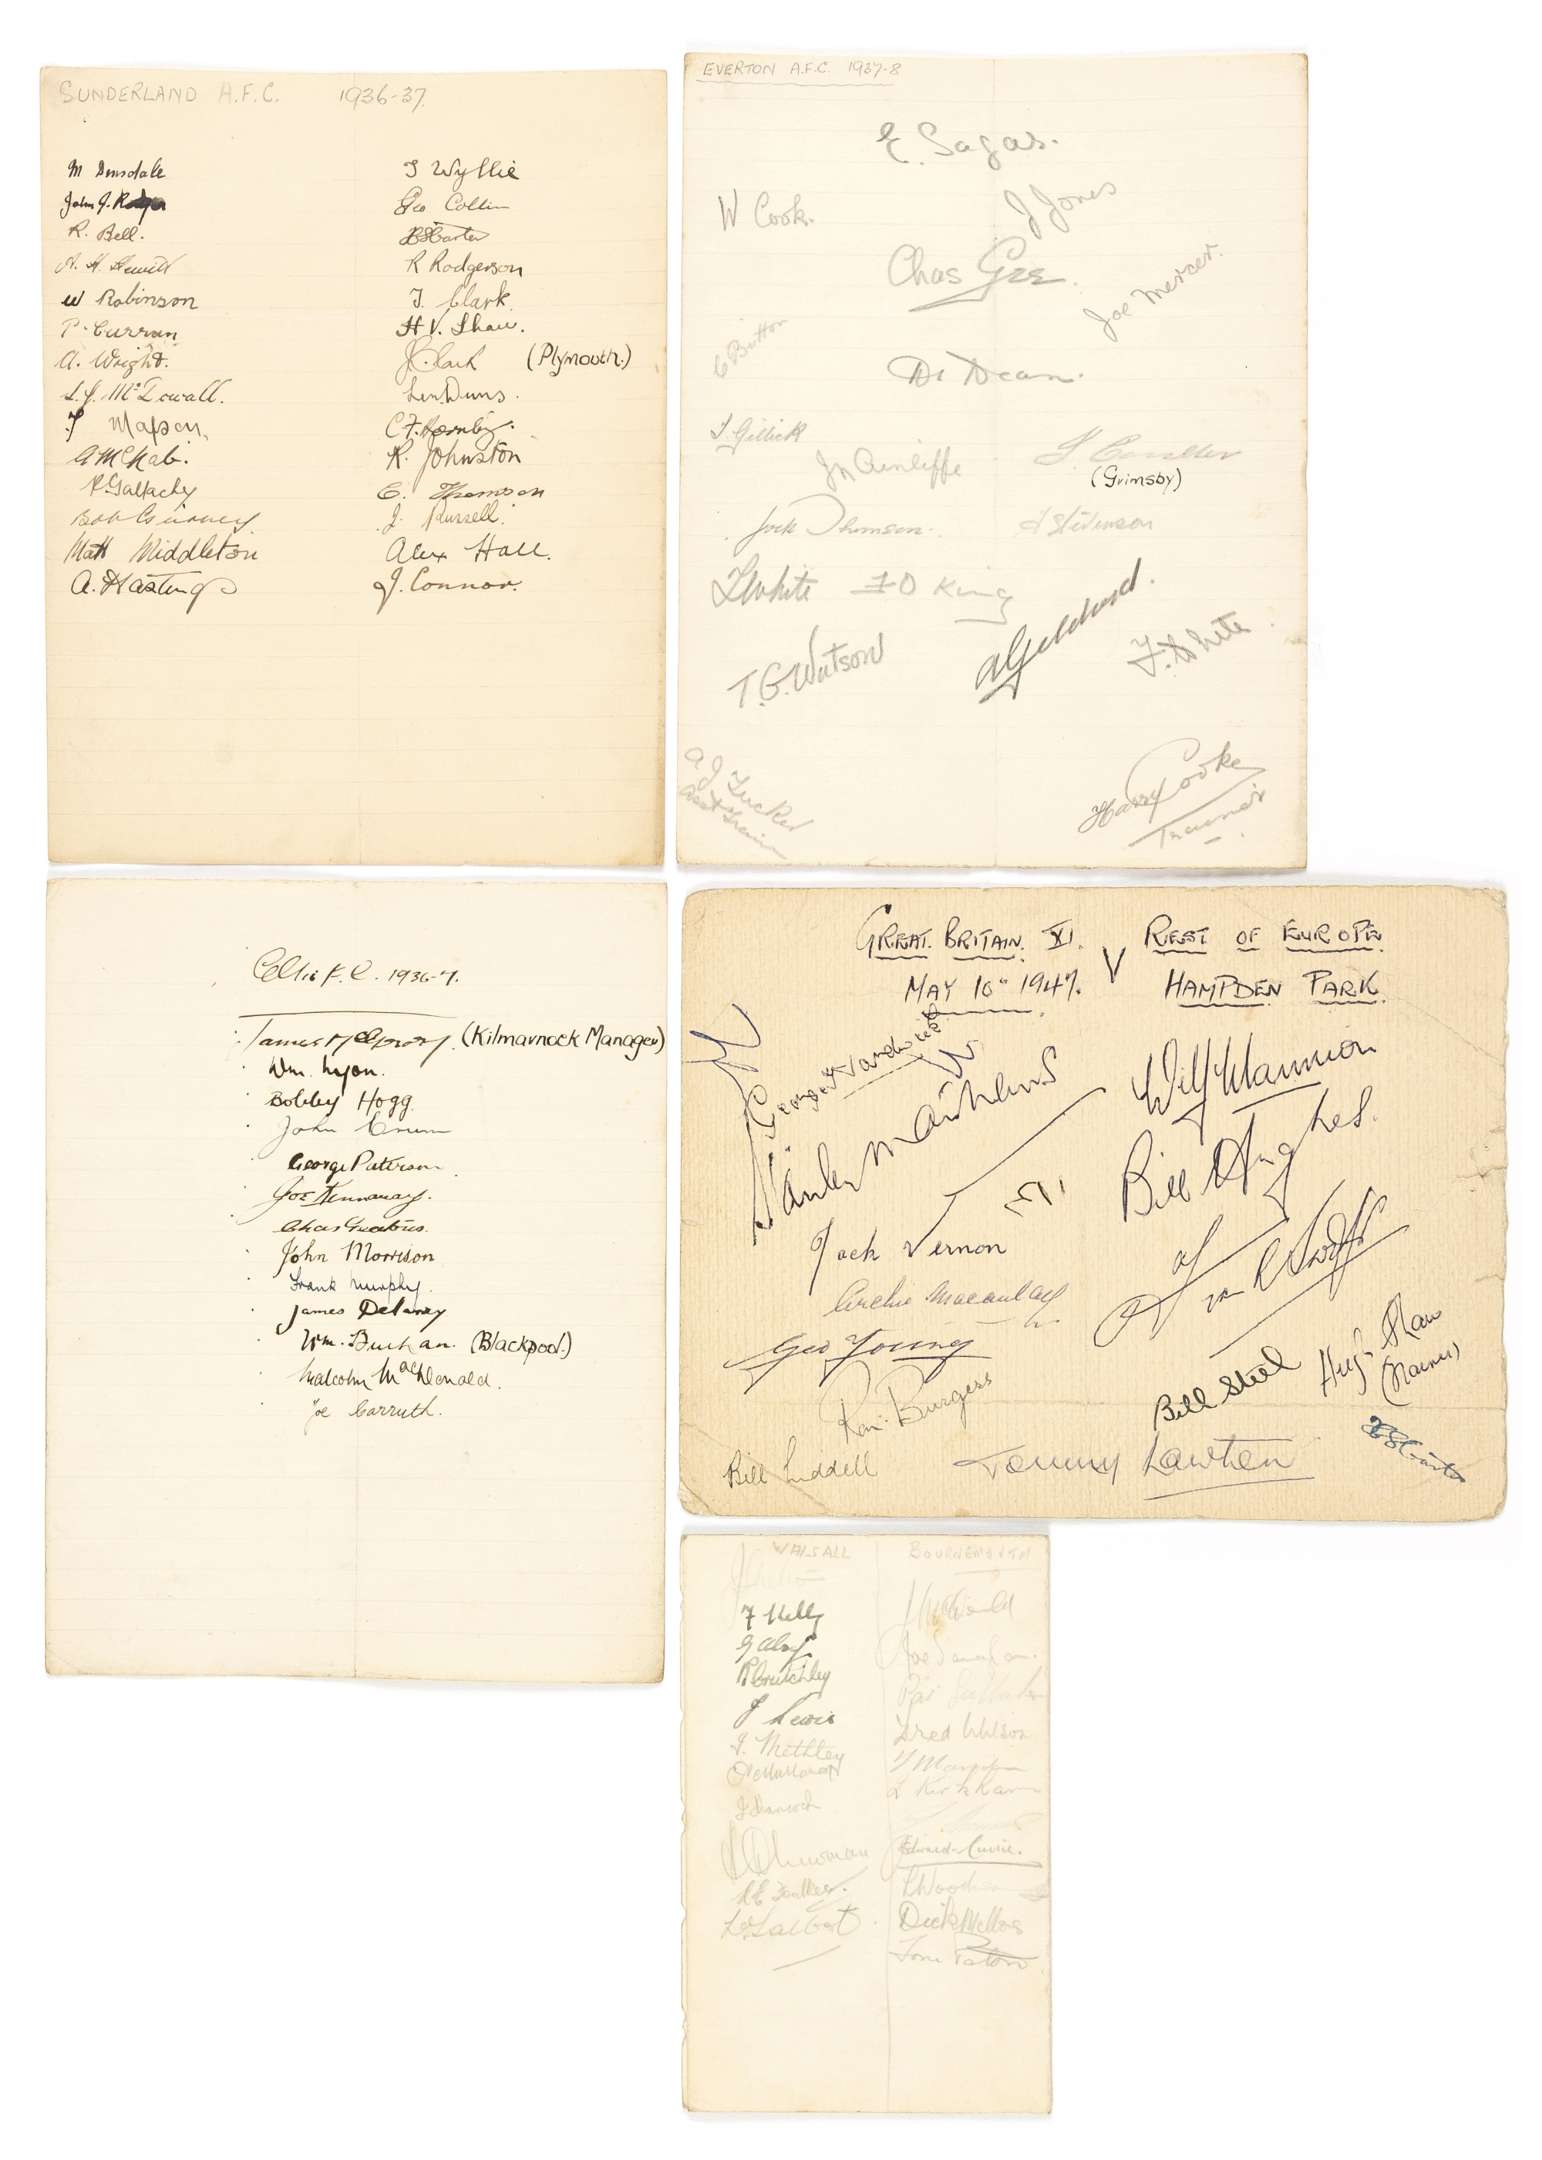 SUNDERLAND A.F.C. 1936-37.
M Dinsdale
John G. Rodger
R. Bell.
A. H. Hewitt
W Robinson
P. Curran
A. Wright.
L.J. McDowall.
J Mapson.
A McNab.
P. Gallacher
Bob Gurney
Matt Middleton
A. Hastings
T Wyllie
Geo Collin
H S Carter
R Rodgerson
J. Clark.
H. V. Shaw.
J Clark (Plymouth.)
Len Duns.
C. F. Hornby.
R. Johnston
C. Thomson
J. Russell.
Alex Hall.
J. Connor.
EVERTON A.F.C. 1937-8
E. Sagar.
W Cook.
J Jones
Chas Gee.
Joe Mercer.
C Britton
Dean.
T. Gillick
J N Cunliffe
(Grimsby)
Jock Thomson.
A Stevenson
T White F D King
A Geldard.
T.G. Watson
T. White
A J Tucker
Asst Train
Harry Cooke
Trainer
Celtic F.C. 1936-7.
James McGrory. (Kilmarnock Manager)
Wm. Lyon.
Bobby Hogg
John Crum
George Paterson
Joe Kennaway.
Chas Geatons.
John Morrison
Frank Murphy.
James Delaney
Wm. Buchan. (Blackpool.)
Malcolm MacDonald.
Joe Carruth.
GREAT BRITAIN XI. V REST OF EUROPE
MAY 10th 1947. HAMPDEN PARK.
George Hardwick
Stanley Matthews
Wilf Mannion
Bill Hughes.
Jack Vernon
Archie Macaulay
Geo Young
Ron Burgess
Bill Steel
Hugh Shaw
(Trainer)
Bill Liddell
Tommy Lawton
H S Carter
WALSALL
F Kelly
G Alsop
R Crutchley
J Lewis
I. Methley
J Hancock
Newman
L. Talbot
BOURNEMOUTH
Fred Wilson
L Kirkham
Edward Currie.
Dick Mellors
Tom Paton